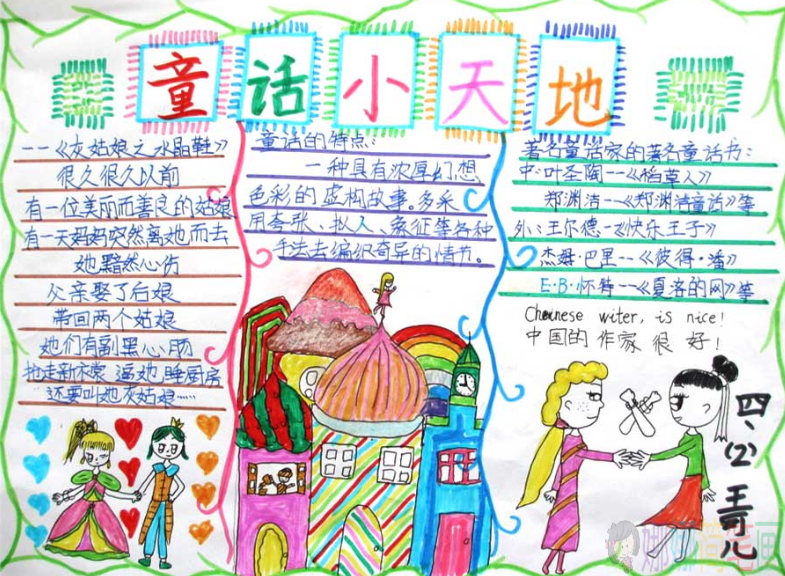 童话小天地
--《灰姑娘之水晶鞋》
很久很久以前
有一位美丽而善良的姑娘
有一天妈妈突然离她而去
她黯然心伤
父亲娶了后娘
带回两个姑娘
她们有副黑心肠
抢走新衣裳 逼她睡厨房
还要叫她灰姑娘……
童话的特点:
一种具有浓厚幻想
色彩的虚构故事。多采
用夸张、拟人、象征等各种
手法去编织奇异的情节。
著名童话家的著名童话书:
中:叶圣陶--《稻草人》
郑渊洁--《郑渊洁童话》等
外:王尔德-《快乐王子》
杰姆·巴里--《彼得·潘》
E·B·怀特--《夏洛的网》等
Chinese witer, is nice!
中国的作家很好!
四、(2)